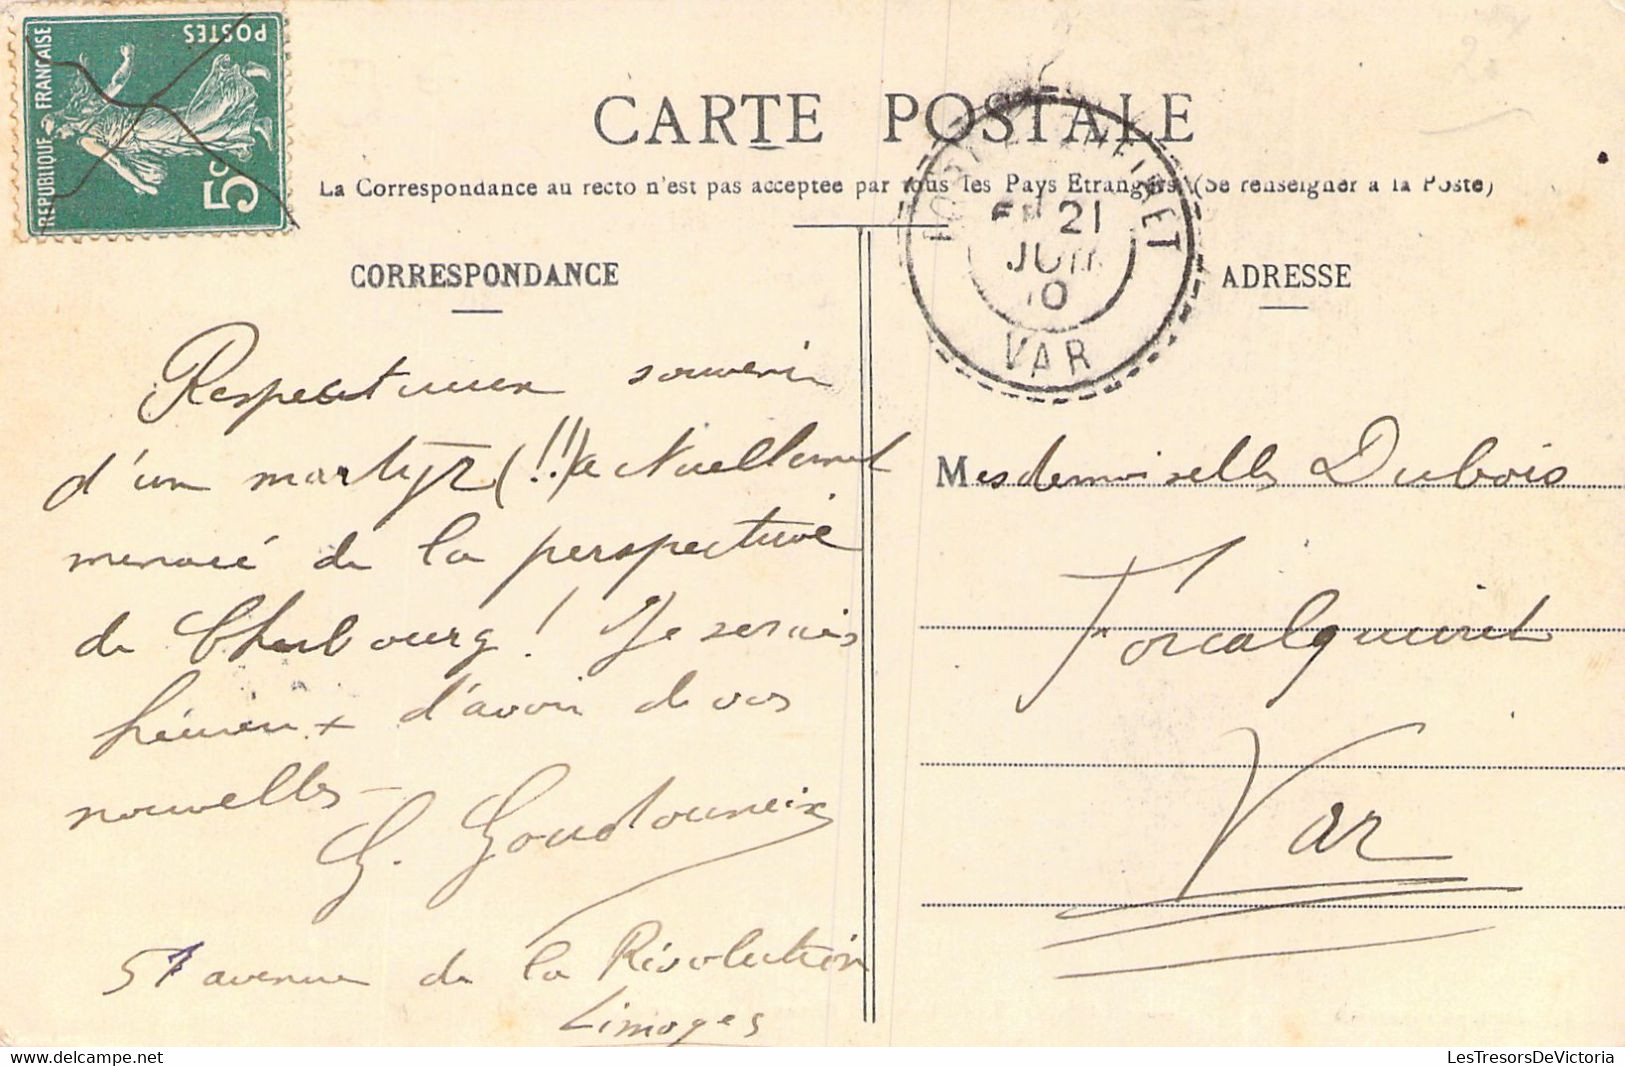 POSTES
REPUBLIQUE FRANCAISE
5c
CARTE POSTALE
La Correspondance au recto n'est pas acceptée par tous les Pays Etrangers. (Se renseigner à la Poste)
21
JUIN
10
VAR
CORRESPONDANCE
Respectueux souvenir
d'un martyr (!!) actuellement
menacé de la perspective
de Cherbourg ! Je serais
heureux d'avoir de vos
nouvelles -
G. Goudouneix
51 avenue de la Révolution
Limoges
ADRESSE
Mesdemoiselles Dubois
Forcalqueiret
Var
LesTresorsDeVictoria